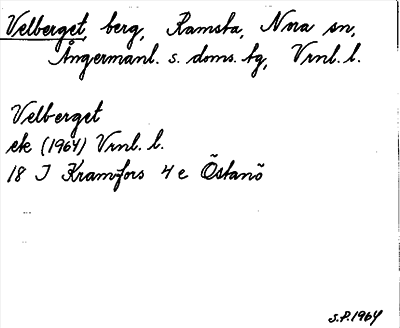 Velberget, berg, Ramsta, Nora sn,
Ångermanl. s. doms. tg, Vrnl. l.
Velberget
ek (1964) Vrnl. l.
18 J Kramfors 4 e Östanö
S.P. 1964